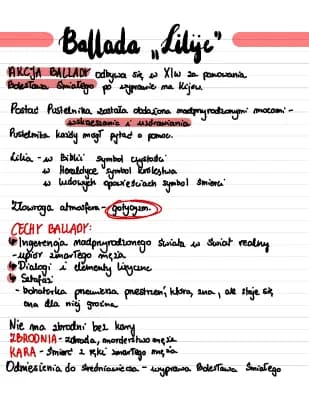 Ballada „Lilije"
AKCJA BALLADY odbywa się w XIw za panowania
Bolesława Śmiałego po wyprawie na Kijów.
Postać Pustelnika została obdarzona nadprzyrodzonymi mocami -
wskrzeszania i uzdrawiania
Pustelnika każdy mógł pytać o pomoc.
Lilia - w Biblii symbol czystości
w Heraldyce symbol królestwa
w ludowych opowieściach symbol śmierci
Złowroga atmosfera - gotycyzm.
CECHY BALLADY:
Ingerencja nadprzyrodzonego świata w świat realny
- upiór zmarłego męża
Dialogi i elementy liryczne
- bohaterka przemierza przestrzeń, którą zna, ale staje się
ona dla niej groźna
Nie ma zbrodni bez kary
ZBRODNIA - zdrada, morderstwo męża
KARA - śmierć z ręki zmarłego męża
Odniesienia do średniowiecza - wyprawa Bolesława Śmiałego